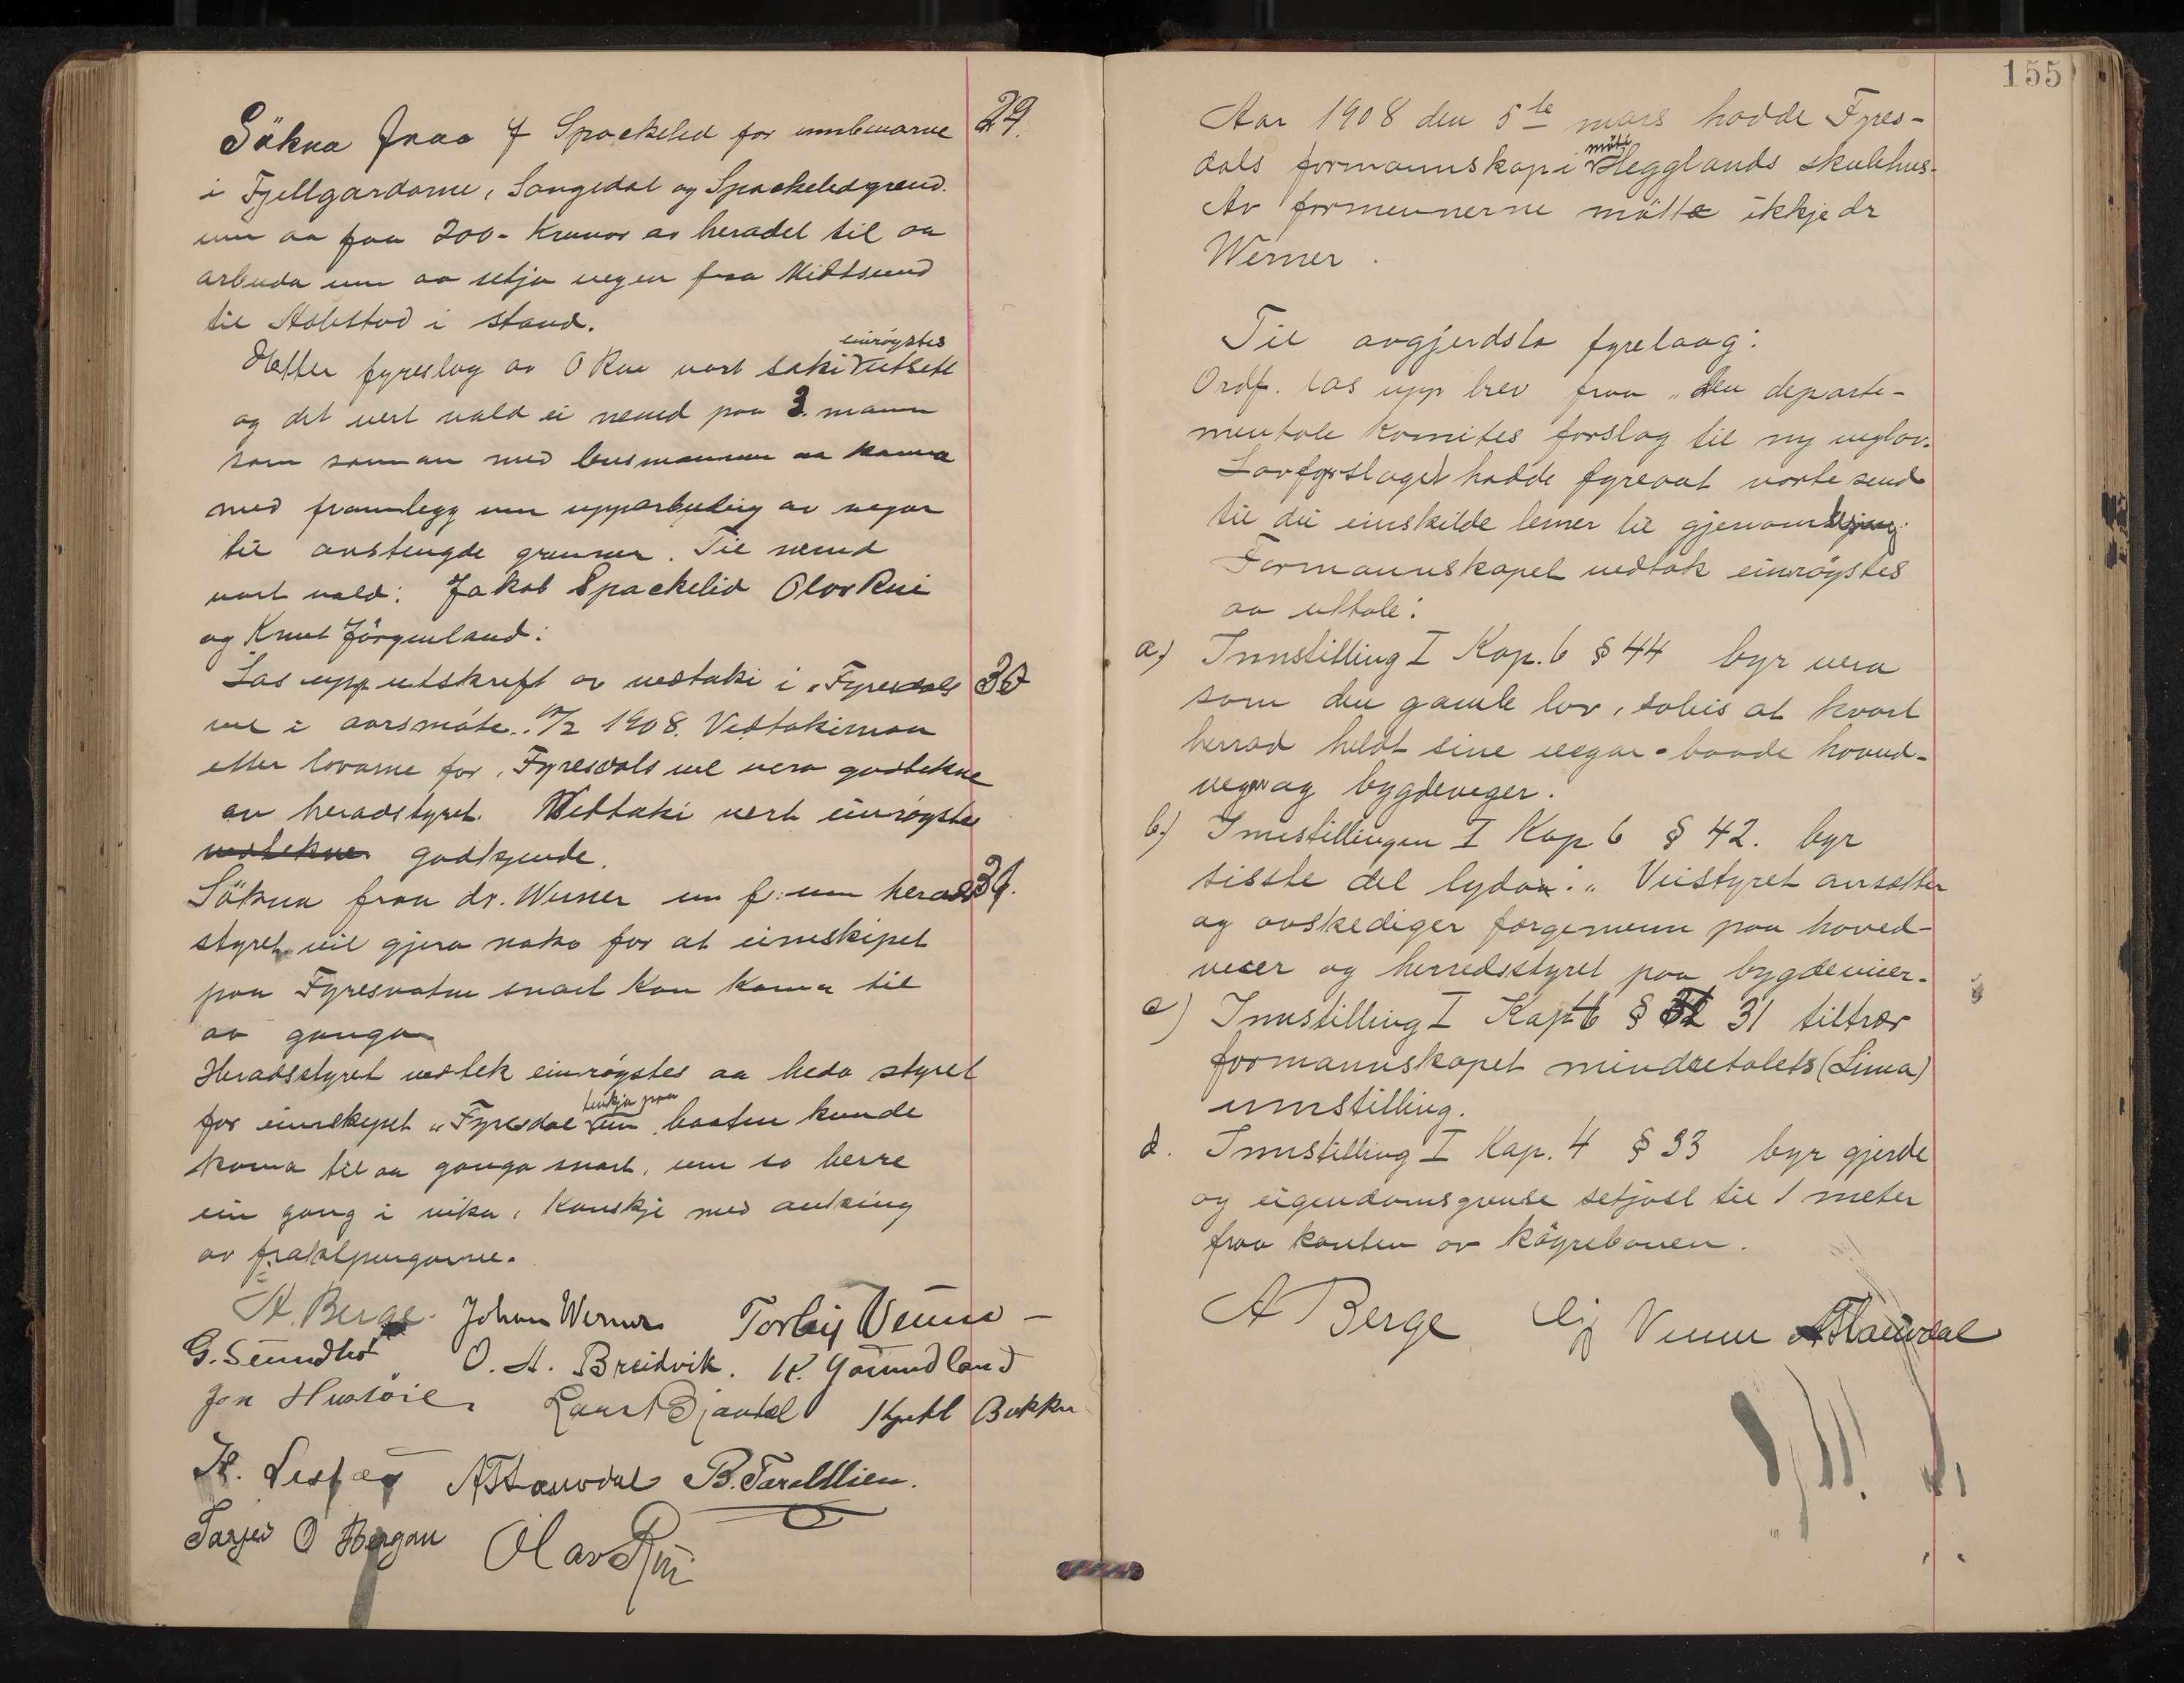 Sökna fraa J Spockelid for innbuarne 29.
i Fjellgardarne, Songedal og Spockelidgrend.
um aa faa 200- Kronor av heradet til aa
arbeida um aa setja vegen fraa Midtsund
til i stand.
Etter fyreslag av O Rui vart saki einröystes utsett
og det vert vald ei nemd paa 3 mann
som saman med aa koma
med framlegg um upparbeiding av vegar
til avstengde grenner. Til nemd
vart vald: Jakob Spockelid Olav Rui
og Knut Jörgenland:
Las upp utskrift av vedtaki i "Fyresdals 30
vel i aarsmöte 1908. Vedtaki maa
etter lovarne for "Fyresdals vel vera godtekne
av heradstyret. Vedtaki vert einröystes
vedtekne godkjende.
Sökna fraa dr. Werner um f: um herads 31.
styret vil gjera noko for at eimskipet
paa Fyresvatn snart kan koma til
aa ganga
Heradsstyret vedtek einröystes aa beda styret
for eimskipet "Fyresdal tenkja paa um baaten kunde
koma til aa ganga snart, um so berre
ein gong i vika, kanskje med auking
av fraktpengarne.
A. Berge. Johan Werner Torleiv Veum
G. Sundtröt O. A. Breidvik. K. Gourundland
Jon Hustöil. Bjaatal Kjetil Bakken
A Haugdal B. Taraldlien.
Tarjei O Haegan Olav Rui
155
Aar 1908 den 5te mars hadde Fyres-
dals formannskap i möte Hegglands skulehus.
Av formennerne mötte ikkje dr
Werner.
Til avgjerdsla fyrelaag:
Ordf. las upp brev fraa "den departe-
mentale komites forslag til ny veglov.
Lovforslaget hadde fyreaat vorte send
til dei einskilde lemer til
Formannskapet vedtok einröystes
aa uttale:
a.) Innstilling I Kap. 6 § 44 byr vera
som den gamle lov, soleis at kvart
herrad heldt sine vegar - baade hovud-
vegar og bygdeveger.
b.) Innstillingen I Kap. 6 § 42. byr
sisste del lyda: "Veistyret ansætter
og avskediger forgemenn paa hoved-
veier og herredsstyret paa bygdeveier.
c) Innstilling I Kap 6 § 31 tiltrær
formannskapet mindretalets (Lima)
innstilling.
d. Innstilling I Kap. 4 § 33 byr gjerde
og eigendomsgrense setjast til 1 meter
fraa kanten av köyrebanen.
A Berge Veum A Haugdal